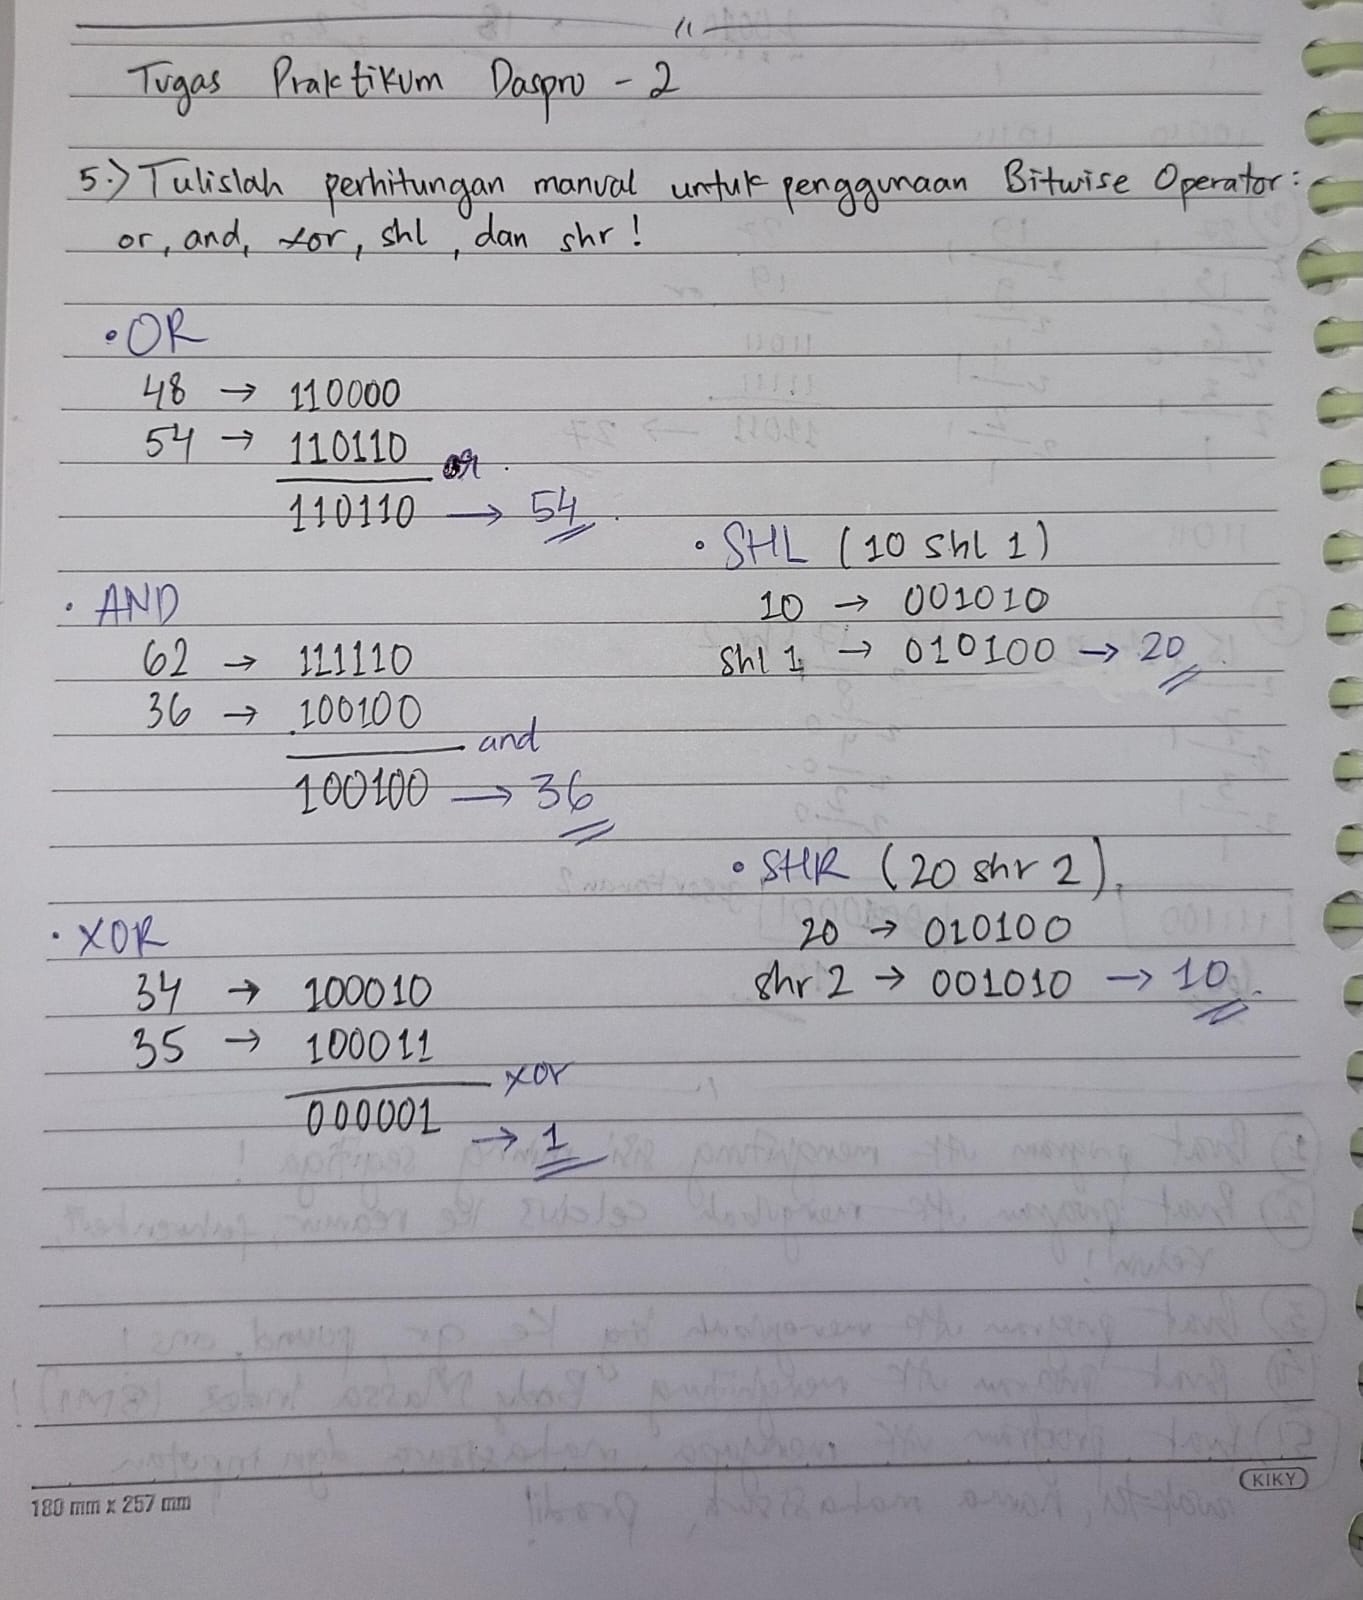 Tugas Praktikum Daspro - 2
5.) Tulislah perhitungan manual untuk penggunaan Bitwise Operator:
or, and, xor, shl, dan shr!
• OR
48 → 110000
54 → 110110
or
110110 → 54
• AND
62 → 111110
36 → 100100
and
100100 → 36
• XOR
34 → 100010
35 → 100011
xor
000001 → 1
• SHL (10 shl 1)
10 → 001010
shl 1 → 010100 → 20
• SHR (20 shr 2)
20 → 010100
shr 2 → 001010 → 10
180 mm x 257 mm
KIKY